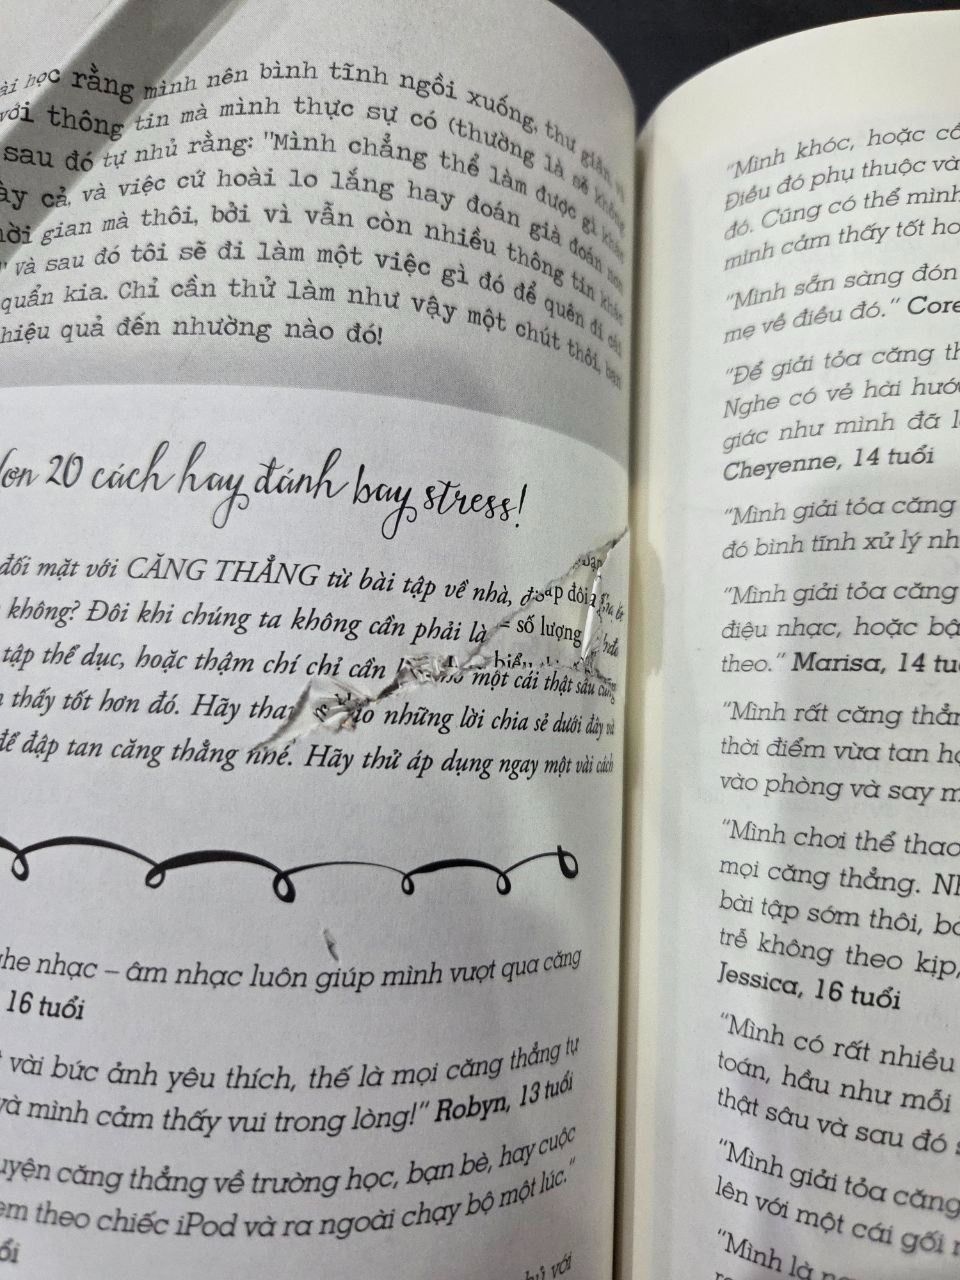 học rằng mình nên bình tĩnh ngồi xuống, thư giãn
với thông tin mà mình thực sự có (thường là sẽ không
sau đó tự nhủ rằng: "Mình chẳng thể làm được gì khác
cả, và việc cứ hoài lo lắng hay đoán già đoán non
gian mà thôi, bởi vì vẫn còn nhiều thông tin khác
và sau đó tôi sẽ đi làm một việc gì đó để quên đi cái
quẩn kia. Chỉ cần thử làm như vậy một chút thôi, bạn
hiệu quả đến nhường nào đó!
20 cách hay đánh bay stress!
đối mặt với CĂNG THẲNG từ bài tập về nhà,
ấp đôi
không? Đôi khi chúng ta không cần phải là
= số lượng
tập thể dục, hoặc thậm chí chỉ cần
một cái thật sâu cũng
thấy tốt hơn đó. Hãy
những lời chia sẻ dưới đây và
để đập tan căng thẳng nhé. Hãy thử áp dụng ngay một vài cách
nhạc – âm nhạc luôn giúp mình vượt qua căng
16 tuổi
vài bức ảnh yêu thích, thế là mọi căng thẳng tự
và mình cảm thấy vui trong lòng!" Robyn, 13 tuổi
căng thẳng về trường học, bạn bè, hay cuộc
theo chiếc iPod và ra ngoài chạy bộ một lúc."
với
"Mình khóc, hoặc
Điều đó phụ thuộc
đó. Cũng có thể mình
mình cảm thấy tốt
"Mình sẵn sàng đón
mẹ về điều đó."
"Để giải tỏa căng
Nghe có vẻ hài
giác như mình đã
Cheyenne, 14 tuổi
"Mình giải tỏa căng
đó bình tĩnh xử lý
"Mình giải tỏa căng
điệu nhạc, hoặc
theo." Marisa, 14
"Mình rất căng
thời điểm vừa tan
vào phòng và say
"Mình chơi thể thao
mọi căng thẳng.
bài tập sớm thôi,
trễ không theo kịp,
Jessica, 16 tuổi
"Mình có rất nhiều
toán, hầu như mỗi
thật sâu và sau đó
"Mình giải tỏa căng
lên với một cái gối
"Mình là